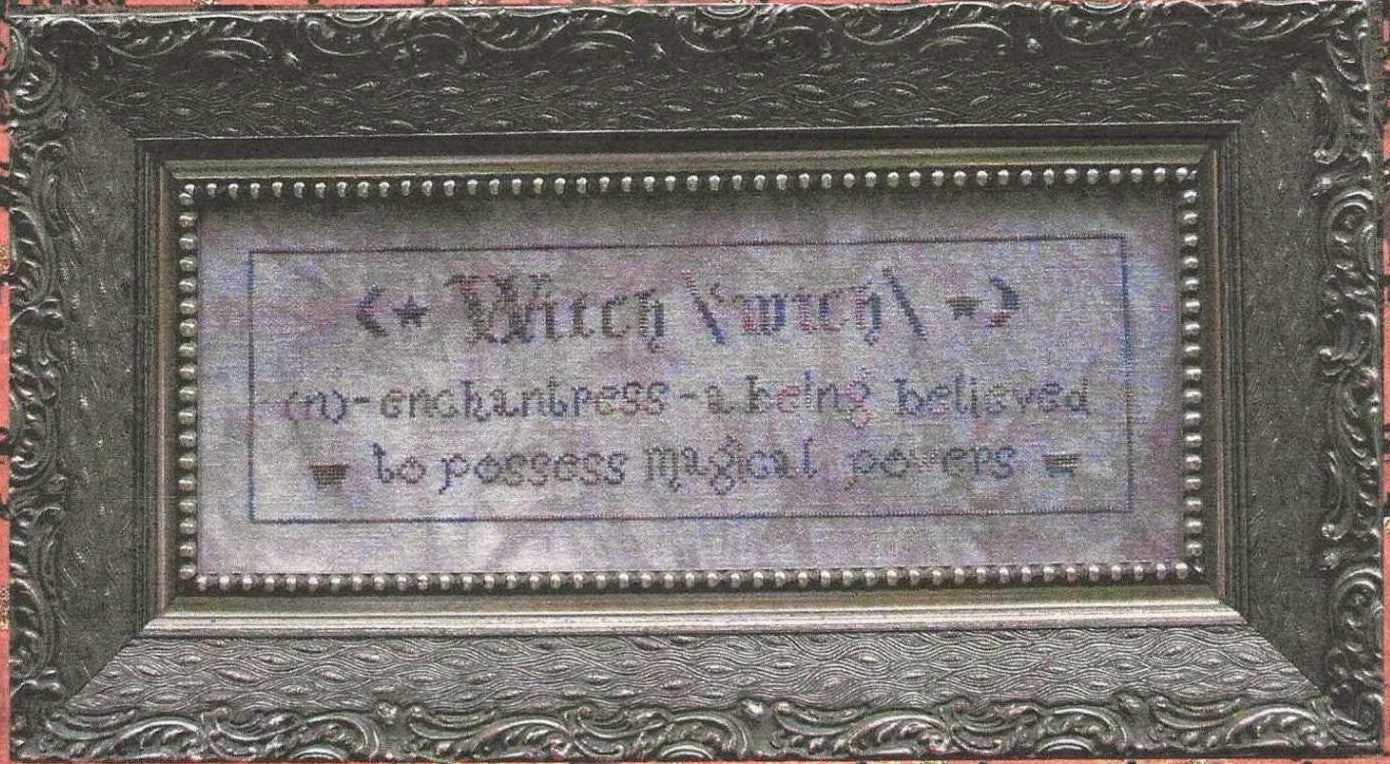 Witch \'wich\
(n)-enchantress-a being believed
to possess magical powers